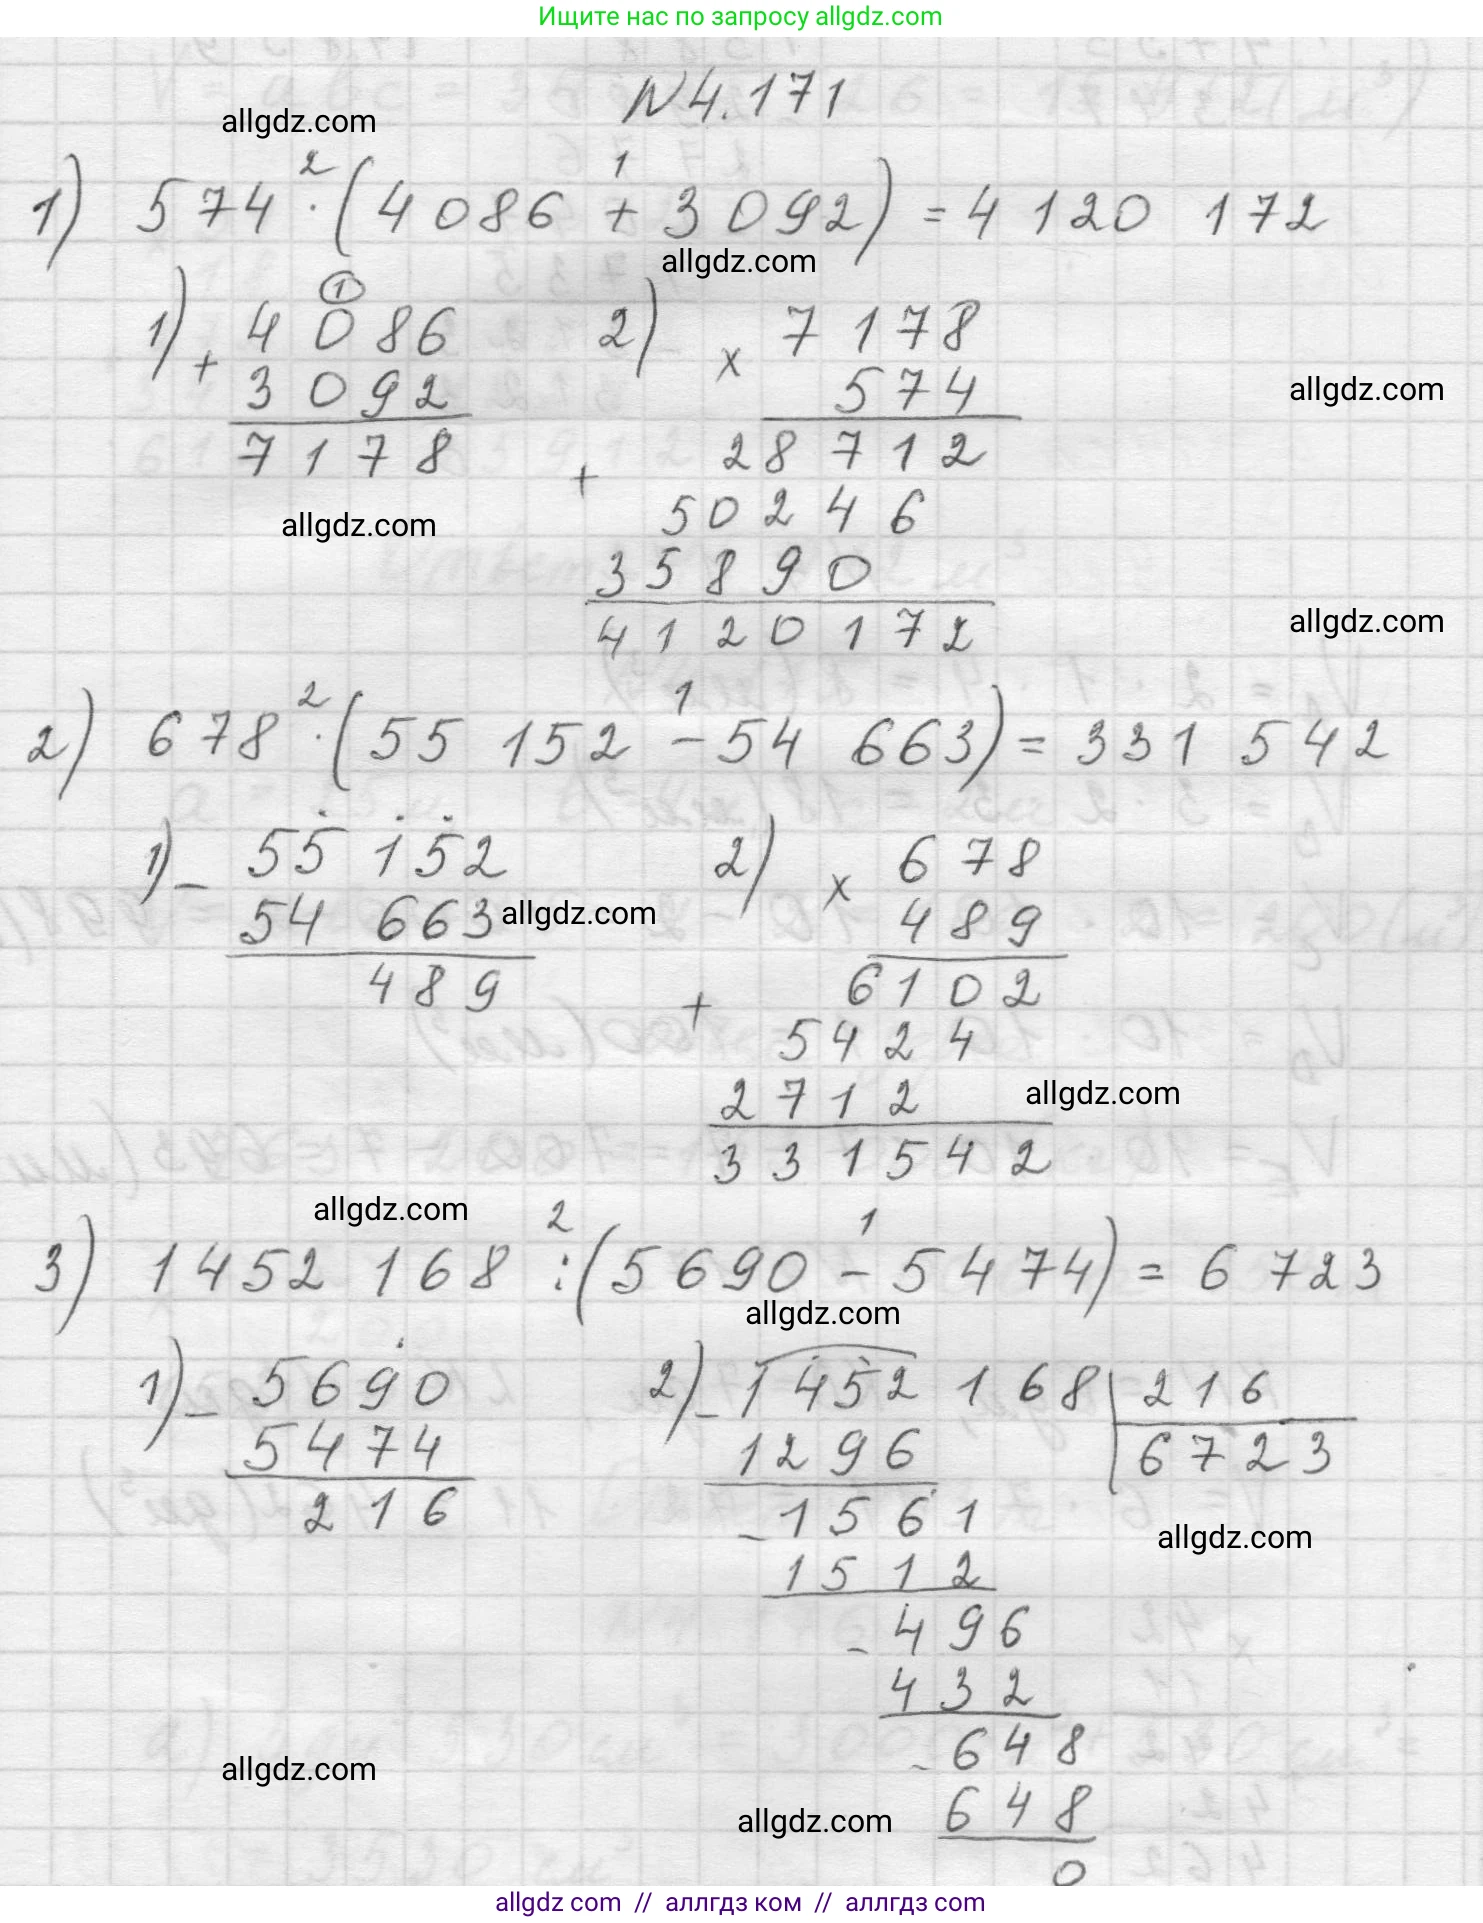 Ищите нас по запросу allgdz.com
N4.171
allgdz.com
2 1
1) 574 · (4086 + 3092) = 4 120 172
allgdz.com
1
1) + 4086 2) × 7178
3092 574
allgdz.com
7178 28712
+ 50246
allgdz.com
35890
4120172
allgdz.com
2 1
2) 678 · (55 152 - 54 663) = 331 542
1) - 55 152 2) × 678
54 663 489
allgdz.com
489 6102
+ 5424
2712
allgdz.com
331542
allgdz.com
2 1
3) 1452 168 : (5690 - 5474) = 6 723
allgdz.com
1) - 5690 2) - 1452 168 | 216
5474 1296 6723
216 - 1561
allgdz.com
1512
- 496
432
- 648
allgdz.com
648
allgdz.com
0
allgdz com // аллгдз ком // аллгдз.com